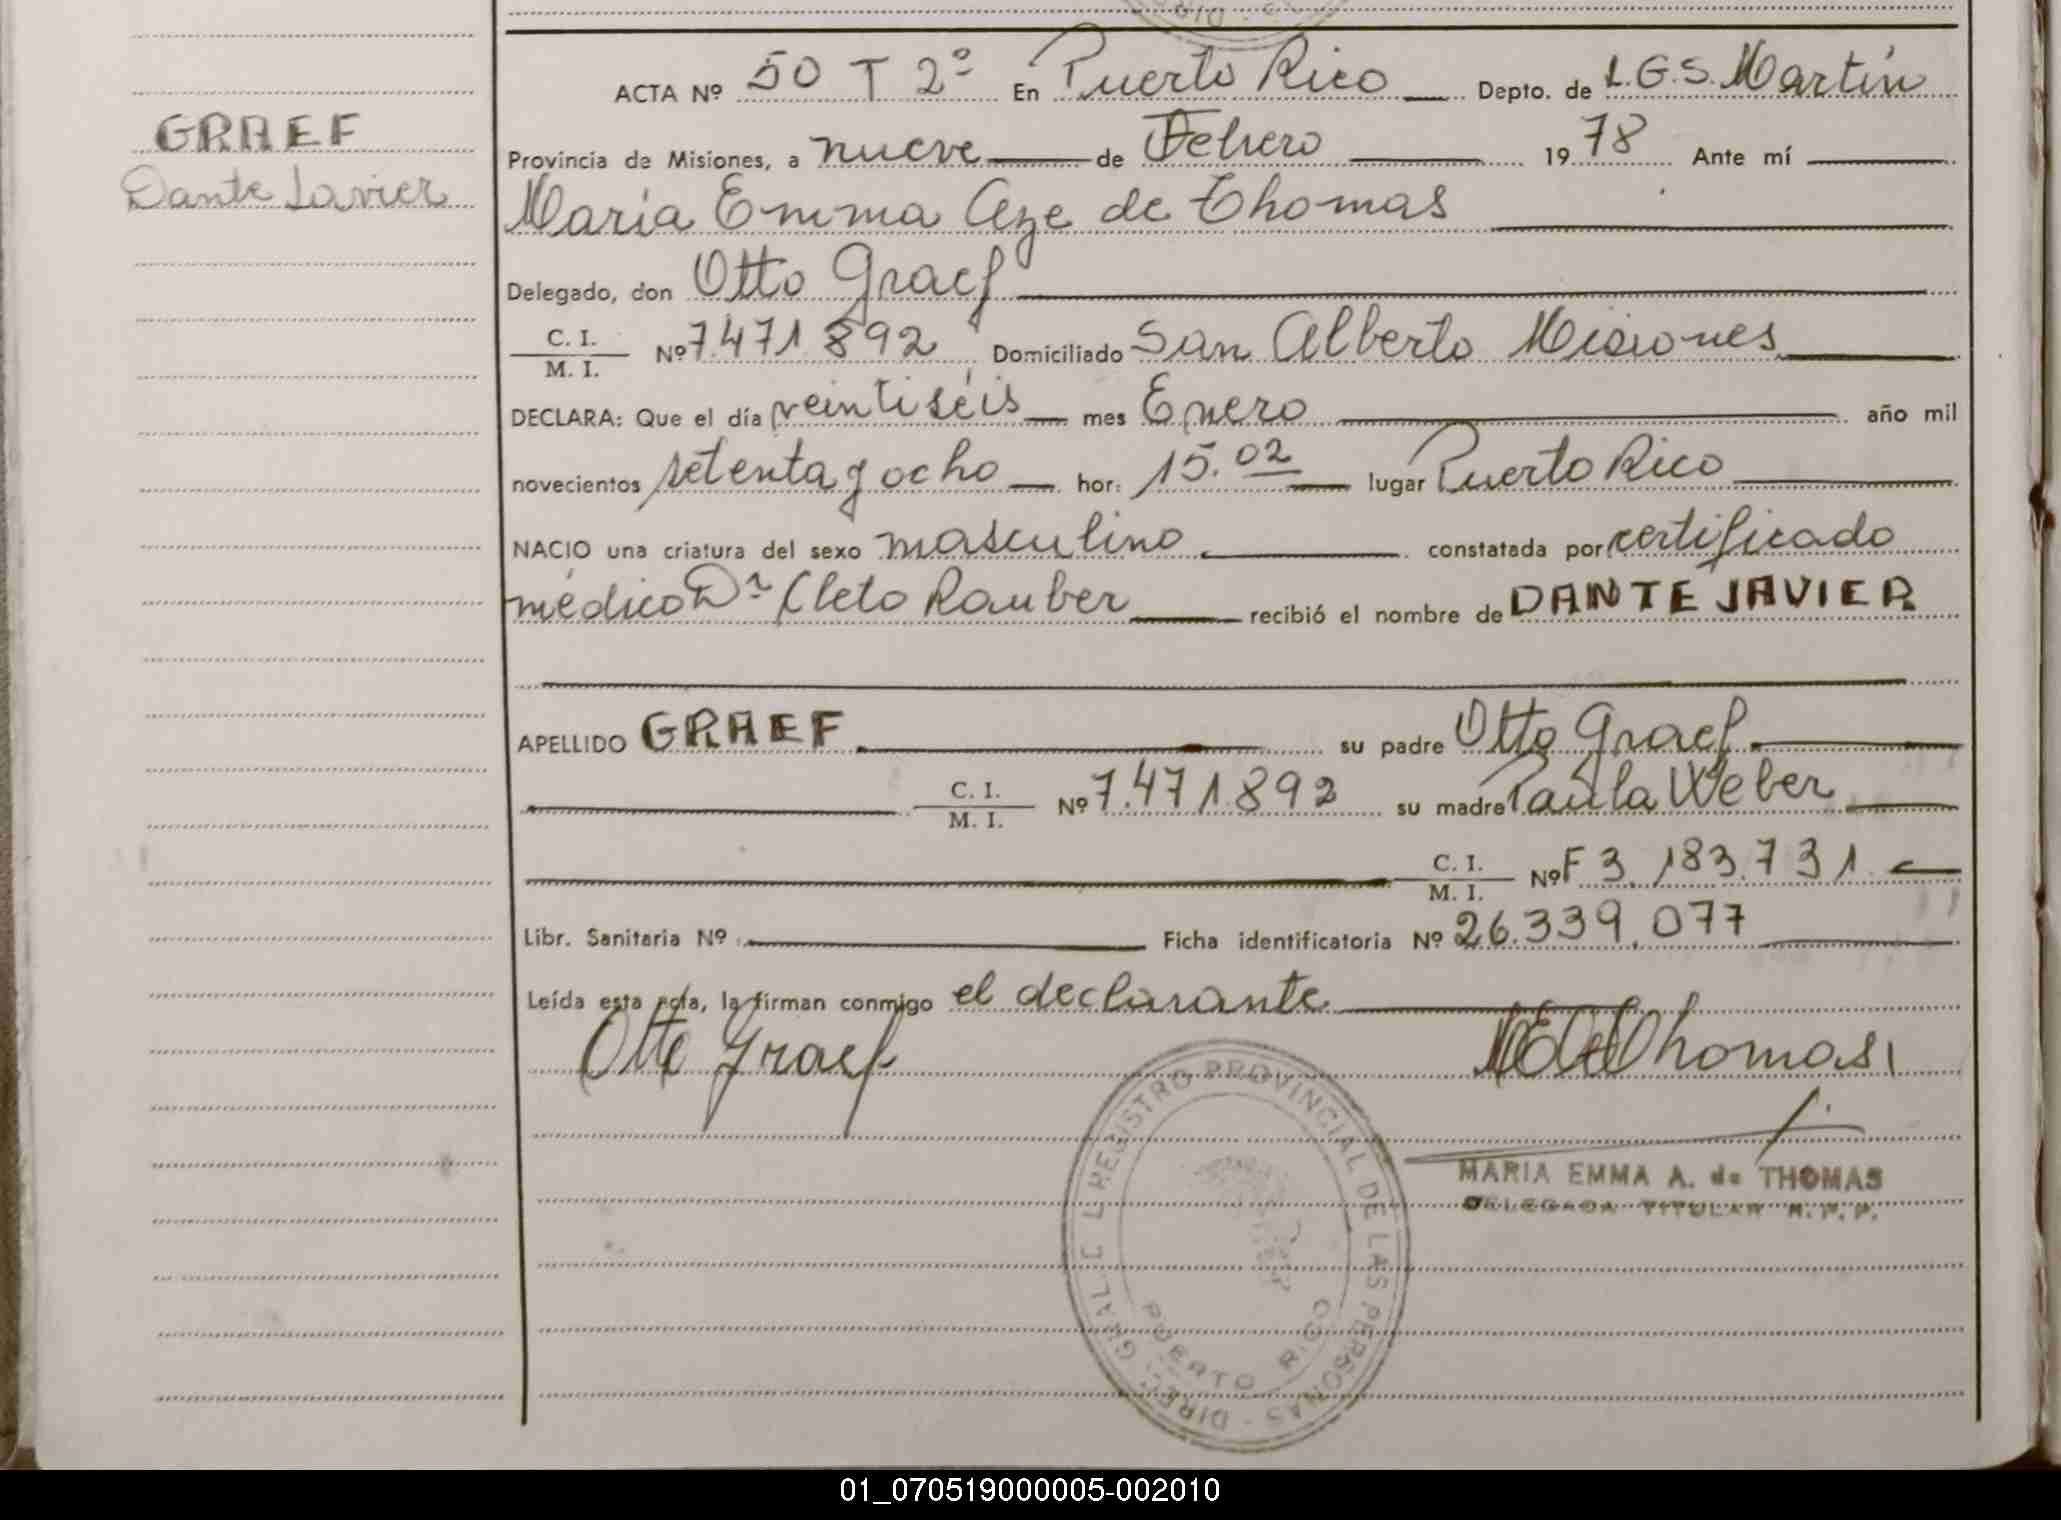 ACTA Nº 50 T 2º En Puerto Rico Depto. de L.G.S. Martín
GRAEF
Provincia de Misiones, a nueve de Febrero 1978 Ante mí
Dante Javier
María Emma Aze de Thomas
Delegado, don Otto Graef
C. I. / M. I. Nº 7.471.892 Domiciliado San Alberto Misiones
DECLARA: Que el día veintiséis mes Enero año mil
novecientos setenta y ocho hor: 15.02 lugar Puerto Rico
NACIO una criatura del sexo masculino constatada por certificado
médico Dr Cleto Rauber recibió el nombre de DANTE JAVIER
APELLIDO GRAEF su padre Otto Graef
C. I. / M. I. Nº 7.471.892 su madre Paula Weber
C. I. / M. I. Nº F 3.183.731
Libr. Sanitaria Nº Ficha identificatoria Nº 26.339.077
Leída esta acta, la firman conmigo el declarante
Otto Graef MEAdeThomas
MARIA EMMA A. de THOMAS
DELEGADA TITULAR R. P. P.
REGISTRO PROVINCIAL DE LAS PERSONAS - DIREC. GRAL.
PUERTO RICO
01_070519000005-002010